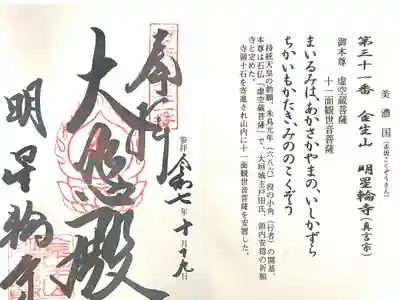 美濃国(赤坂こくぞうさん)
第三十一番 金生山 明星輪寺(真言宗)
御本尊 虚空蔵菩薩
十一面観世音菩薩
まいるみは、あかさかやまの、いしかずら
ちかいもかたき、みののこくぞう
持統天皇の勅願、朱鳥元年(六八六)役の小角(行者)の開基、
本尊は石仏「虚空蔵菩薩」で、大垣城主戸田氏、領内安穏の祈願
寺と定めた。
寺領十石を寄進され山内に十一面観世音菩薩を安置した。
奉拝
参拝 令和七年十月十九日
大悲殿
明星輪寺